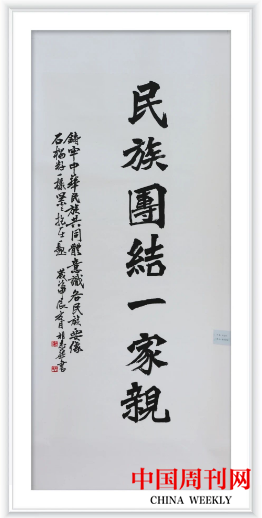 民族團結一家親
鑄牢中華民族共同體意識各民族要像
石榴籽一樣緊抱在一起
中国周刊网
CHINA WEEKLY